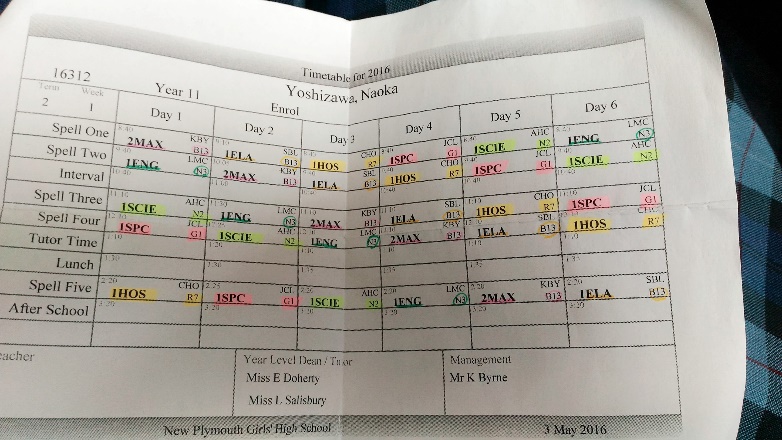 Timetable for 2016
16312 Year 11 Yoshizawa, Naoka
Term Week Enrol
2 1 Day 1 Day 2 Day 3 Day 4 Day 5 Day 6
Spell One 2MAX KBY B13 1ELA SBL B13 1HOS CHO R7 1SPC JCL G1 1SCIE AHC N2 1ENG LMC N3
Spell Two 1ENG LMC N3 2MAX KBY B13 1ELA SBL B13 1HOS CHO R7 1SPC JCL G1 1SCIE AHC N2
Interval
Spell Three 1SCIE AHC N2 1ENG LMC N3 2MAX KBY B13 1ELA SBL B13 1HOS CHO R7 1SPC JCL G1
Spell Four 1SPC JCL G1 1SCIE AHC N2 1ENG LMC N3 2MAX KBY B13 1ELA SBL B13 1HOS CHO R7
Tutor Time
Lunch
Spell Five 1HOS CHO R7 1SPC JCL G1 1SCIE AHC N2 1ENG LMC N3 2MAX KBY B13 1ELA SBL B13
After School
eacher Year Level Dean / Tutor Management
Miss E Doherty Mr K Byrne
Miss L Salisbury
New Plymouth Girls' High School 3 May 2016